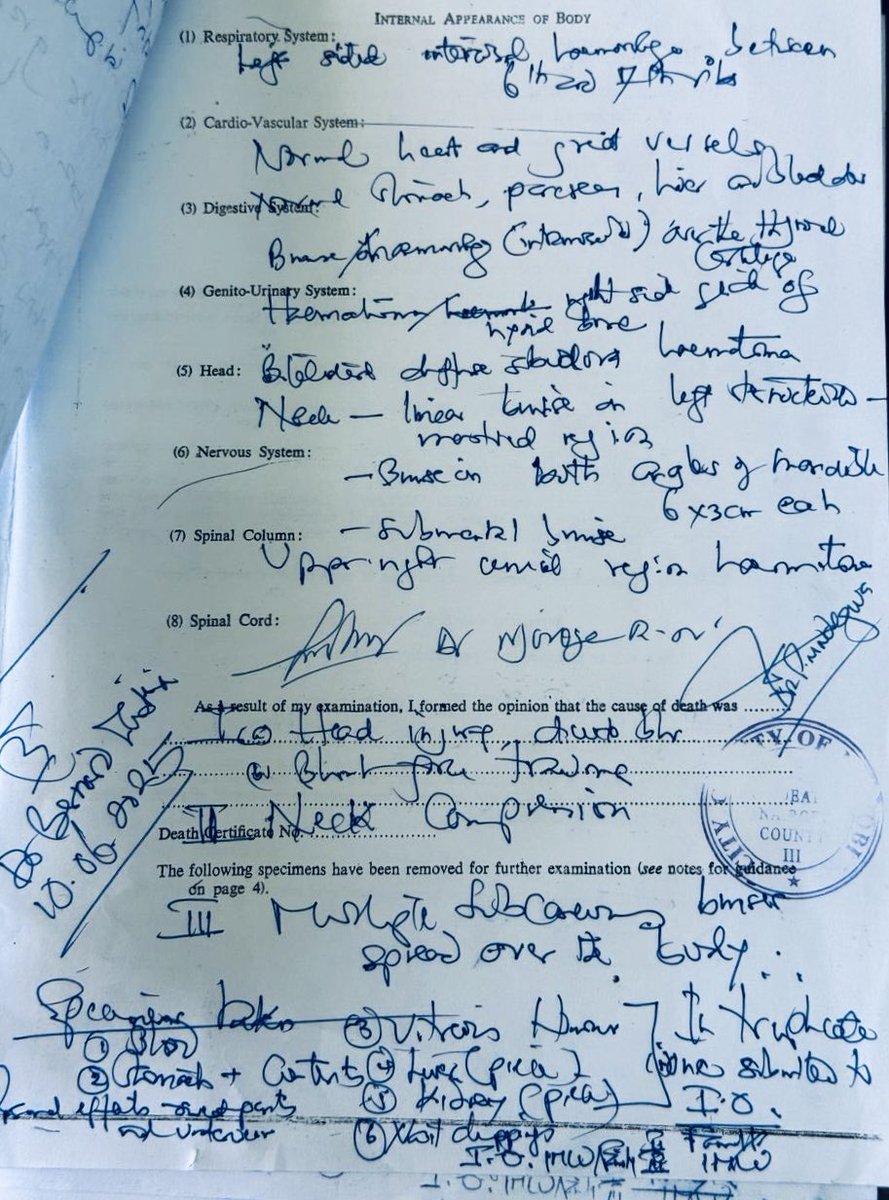 INTERNAL APPEARANCE OF BODY
(1) Respiratory System:
Left sided intercostal haemorrhage between
6th and 7th ribs
(2) Cardio-Vascular System:
Normal heart and great vessels
Normal Stomach, pancreas, liver and bladder
(3) Digestive System:
Bruise/haemorrhage (intramuscular) over the thyroid
Cartilage
(4) Genito-Urinary System:
Haematoma right side of
hyoid bone
(5) Head: Bilateral diffuse subdural haematoma
Neck — linear bruise on left
mastoid region
(6) Nervous System:
— Bruise on both angles of mandible
6 x 3cm each
(7) Spinal Column: — Submental bruise
Upper right cervical region haematoma
(8) Spinal Cord:
Dr
As a result of my examination, I formed the opinion that the cause of death was
I (a) Head injury,
(b) Blunt force trauma
II Neck Compression
Death Certificate No.
The following specimens have been removed for further examination (see notes for guidance
on page 4).
III Multiple Subcutaneous bruises
spread over the body.
Specimens taken
① Blood
② Stomach + Contents
③ Vitreous Humour
④ Liver (piece)
⑤ Kidney (piece)
⑥ Nail clippings
In triplicate
submitted to
I.O.
and underwear
I.O. IMLU
Dr Bernard Midia
10.06.2025
CITY OF
COUNTY
III